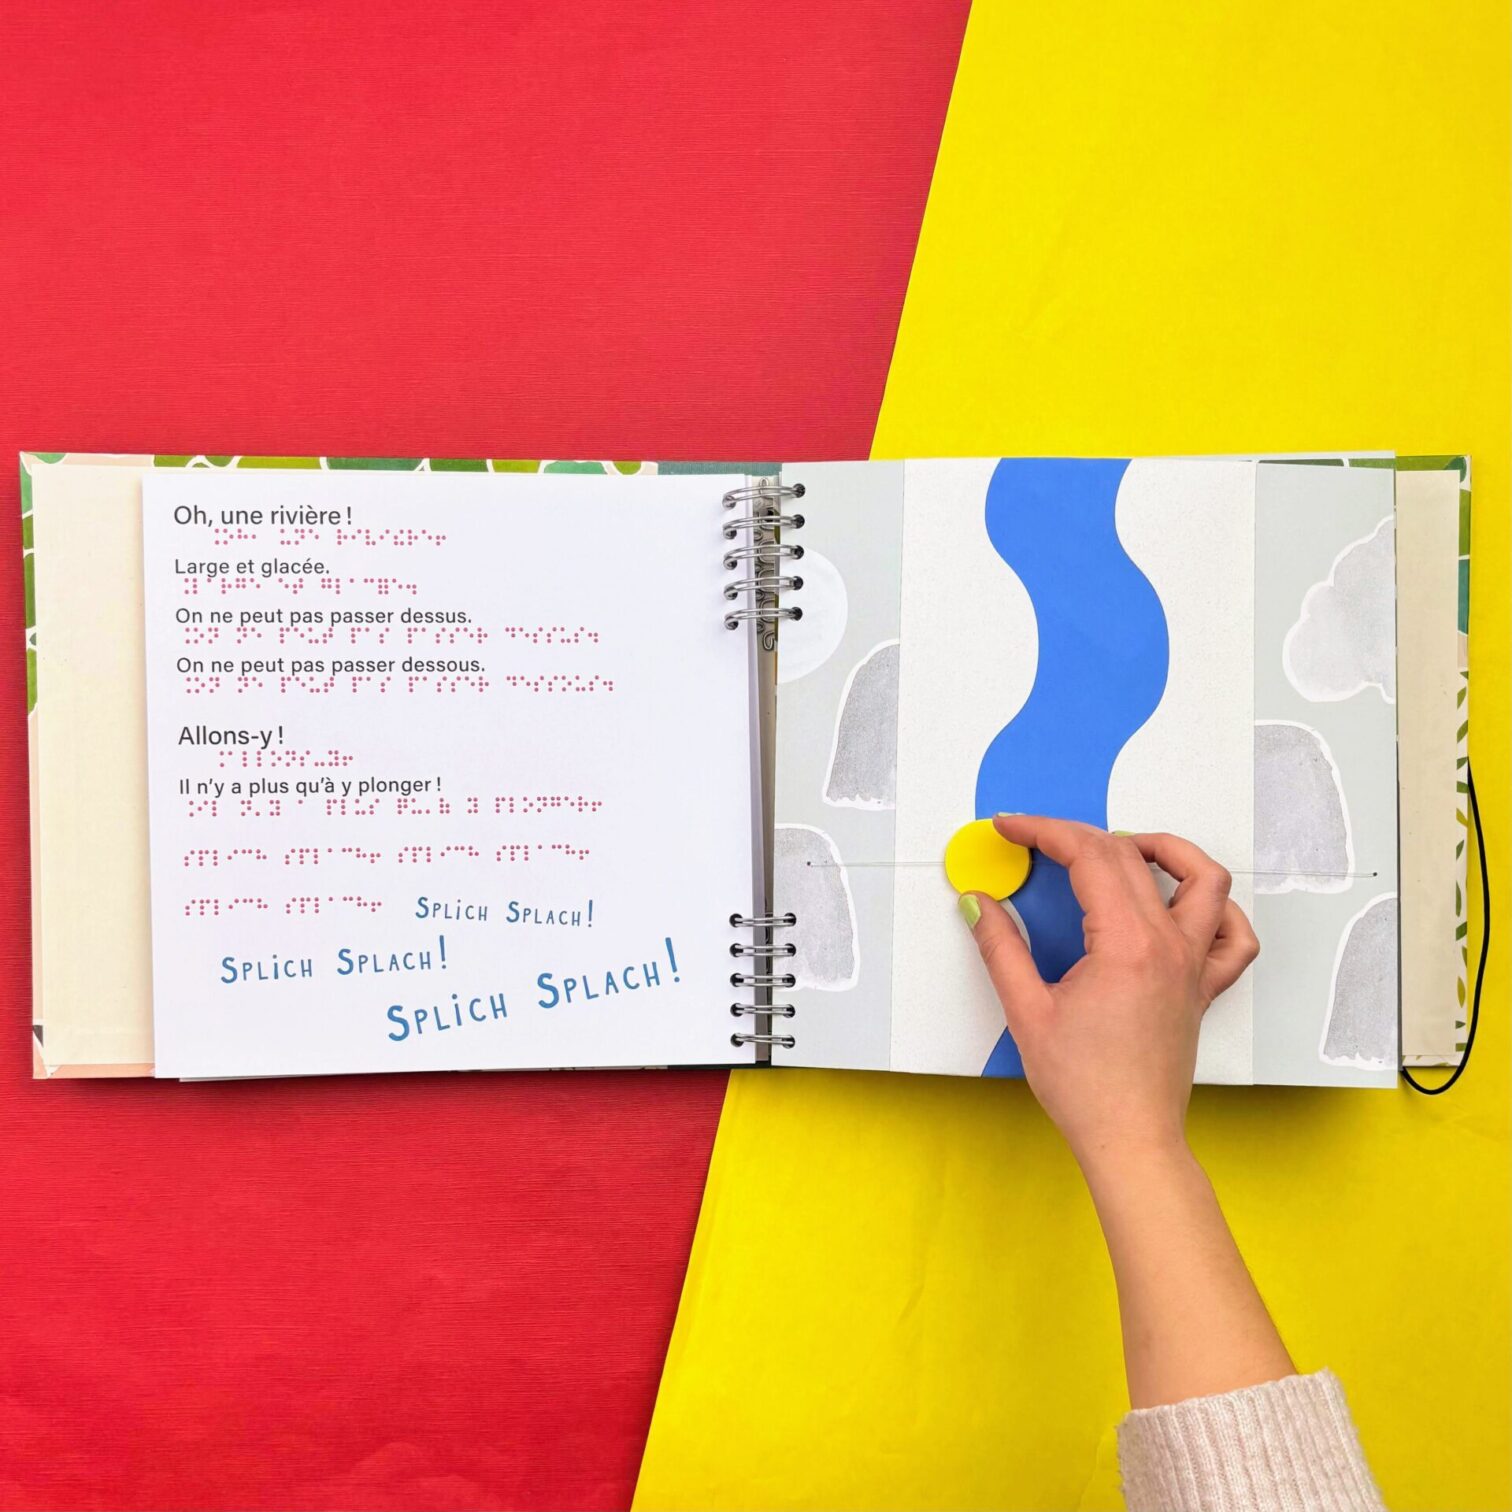 Oh, une rivière !
Large et glacée.
On ne peut pas passer dessus.
On ne peut pas passer dessous.
Allons-y !
Il n'y a plus qu'à y plonger !
SPLiCH SPLACH !
SPLiCH SPLACH !
SPLiCH SPLACH !